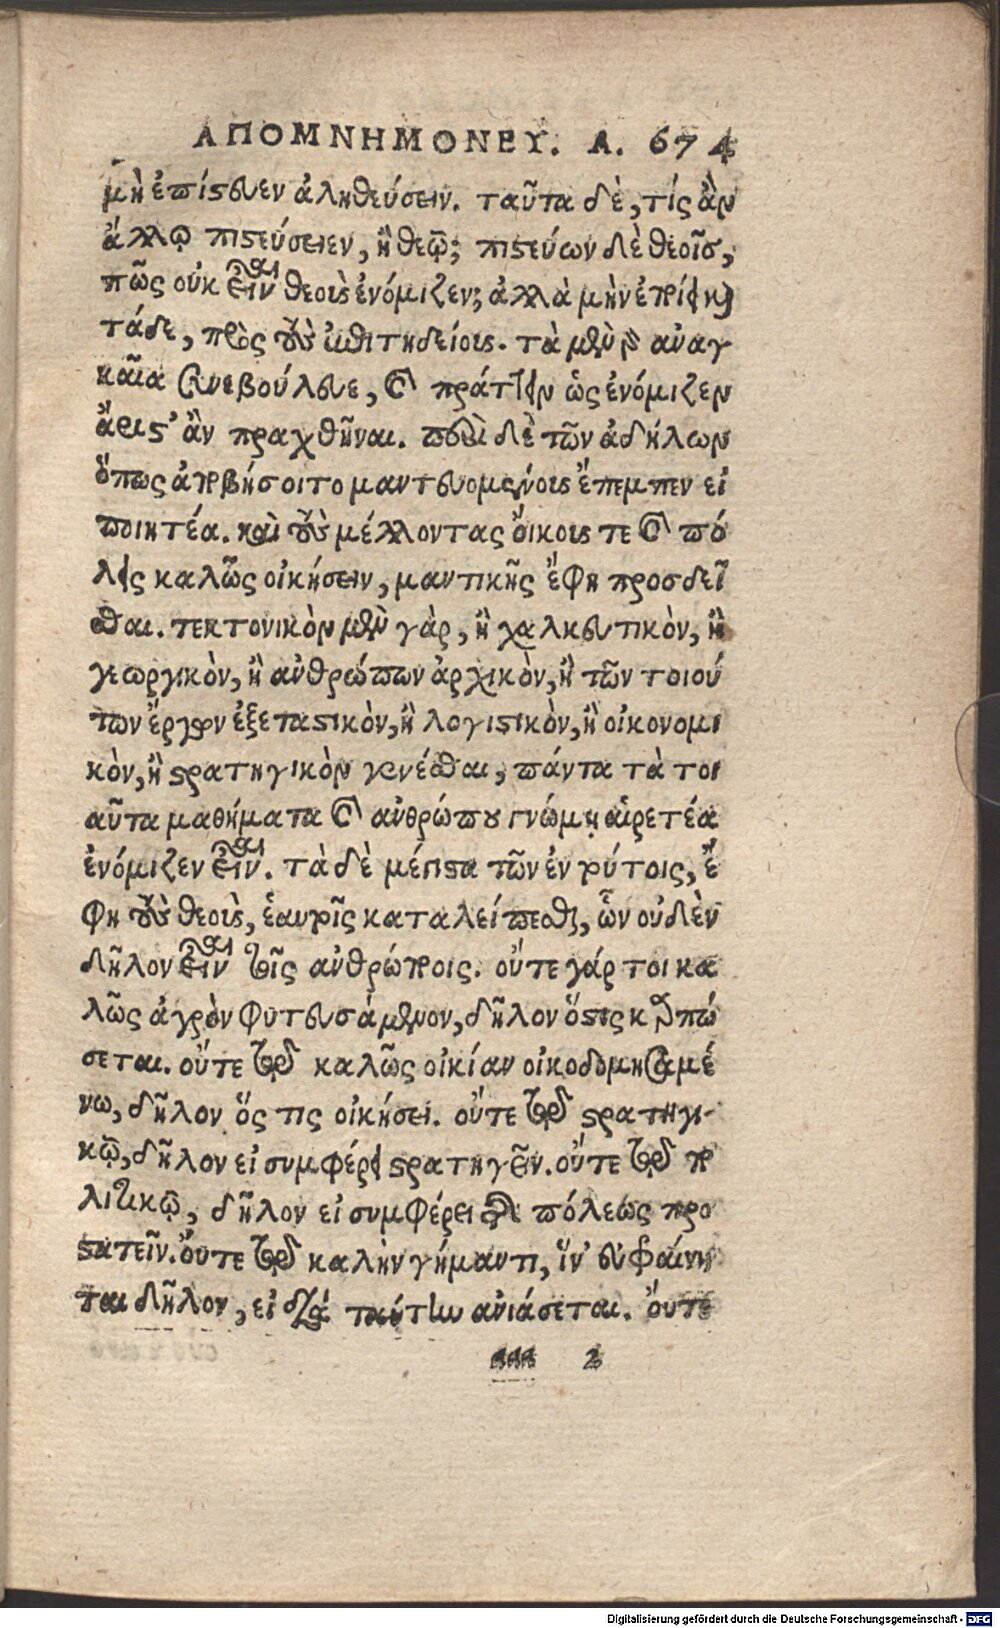 ΑΠΟΜΝΗΜΟΝΕΥ. Α. 674
μὴ ἐπίστευεν ἀληθεύσειν. ταῦτα δὲ, τίς ἂν
ἄλλῳ πιστεύσειεν, ἢ θεῷ; πιστεύων δὲ θεοῖς,
πῶς οὐκ εἶναι θεοὺς ἐνόμιζεν; ἀλλὰ μὴν ἐποίει καὶ
τάδε, πρὸς τοὺς ἐπιτηδείους. τὰ μὲν γὰρ ἀναγ
καῖα συνεβούλευε, καὶ πράττειν ὡς ἐνόμιζεν
ἄριστ' ἂν πραχθῆναι. περὶ δὲ τῶν ἀδήλων
ὅπως ἀποβήσοιτο μαντευομένους ἔπεμπεν εἰ
ποιητέα. καὶ τοὺς μέλλοντας οἴκους τε καὶ πό
λεις καλῶς οἰκήσειν, μαντικῆς ἔφη προσδεῖ
σθαι. τεκτονικὸν μὲν γὰρ, ἢ χαλκευτικὸν, ἢ
γεωργικὸν, ἢ ἀνθρώπων ἀρχικὸν, ἢ τῶν τοιού
των ἔργων ἐξεταστικὸν, ἢ λογιστικὸν, ἢ οἰκονομι
κὸν, ἢ στρατηγικὸν γενέσθαι, πάντα τὰ τοι
αῦτα μαθήματα καὶ ἀνθρώπου γνώμῃ αἱρετέα
ἐνόμιζεν εἶναι. τὰ δὲ μέγιστα τῶν ἐν τούτοις, ἔ
φη τοὺς θεοὺς, ἑαυτοῖς καταλείπεσθαι, ὧν οὐδὲν
δῆλον εἶναι τοῖς ἀνθρώποις. οὔτε γάρ τοι κα
λῶς ἀγρὸν φυτευσάμενον, δῆλον ὅστις καρπώ
σεται. οὔτε τῷ καλῶς οἰκίαν οἰκοδομησαμέ
νω, δῆλον ὅς τις οἰκήσει. οὔτε τῷ στρατηγι-
κῷ, δῆλον εἰ συμφέρει στρατηγεῖν. οὔτε τῷ πο
λιτικῷ, δῆλον εἰ συμφέρει τῆς πόλεως προ
στατεῖν. οὔτε τῷ καλὴν γήμαντι, ἵν' εὐφραίνη
ται δῆλον, εἰ διὰ ταύτην ἀνιάσεται. οὔτε
2
Digitalisierung gefördert durch die Deutsche Forschungsgemeinschaft - DFG